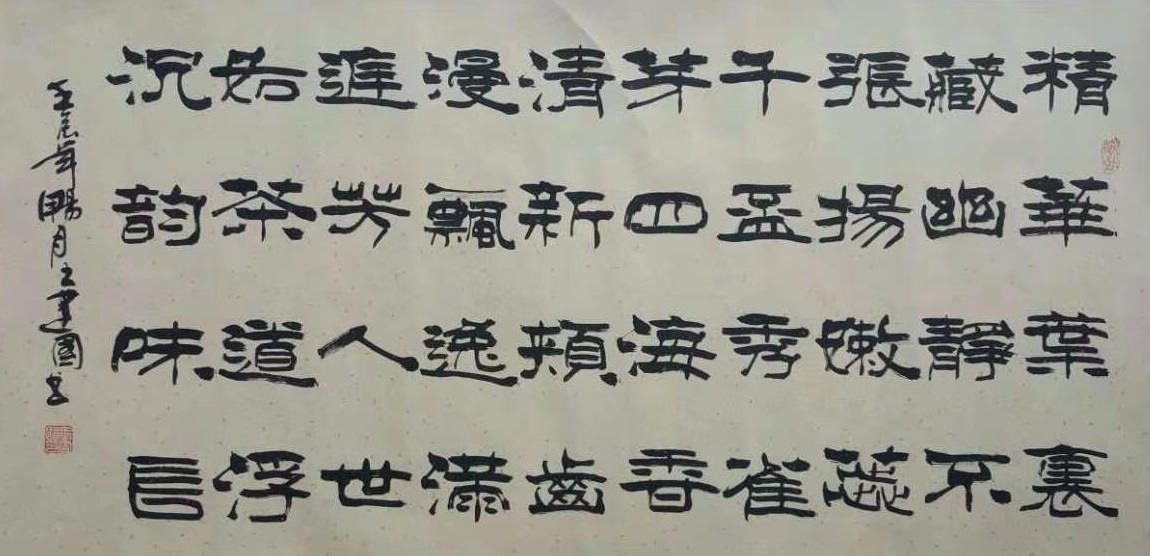 精華葉裏
藏幽靜不
張揚嫩蕊
千盃秀雀
芽四海香
清新頰齒
漫飄逸滿
芳人世
如茶道浮
沉韵味長
壬寅年暢月王建國書